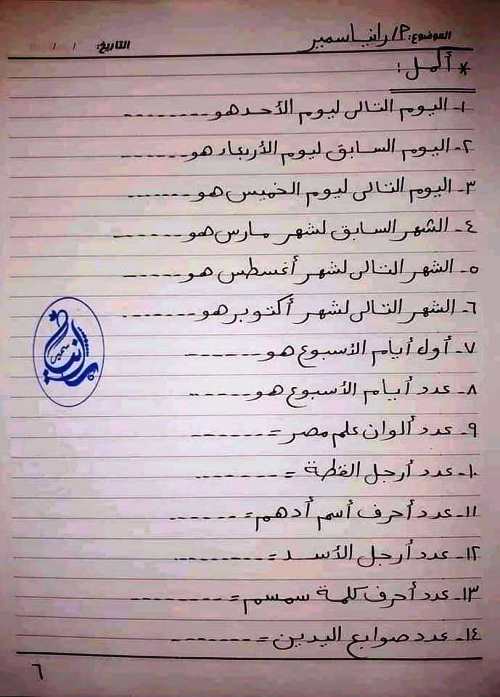 الموضوع: م/ رانيا سمير
التاريخ: / /
* أكمل:
١- اليوم التالى ليوم الأحد هو --------
٢- اليوم السابق ليوم الأربعاء هو ------
٣- اليوم التالى ليوم الخميس هو -------
٤- الشهر السابق لشهر مارس هو -------
٥- الشهر التالى لشهر أغسطس هو ------
٦- الشهر التالى لشهر أكتوبر هو --------
٧- أول أيام الأسبوع هو ------
٨- عدد أيام الأسبوع هو ------
٩- عدد ألوان علم مصر = -------
١٠- عدد أرجل القطة = -------
١١- عدد أحرف أسم أدهم = -------
١٢- عدد أرجل الأسد = --------
١٣- عدد أحرف كلمة سمسم = --------
١٤- عدد صوابع اليدين = -------
رانيا سمير
٦